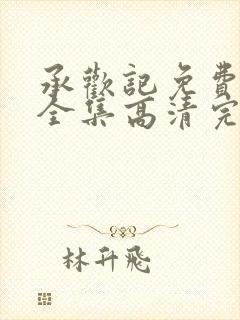 承歡記免費
全集高清完
林升飛